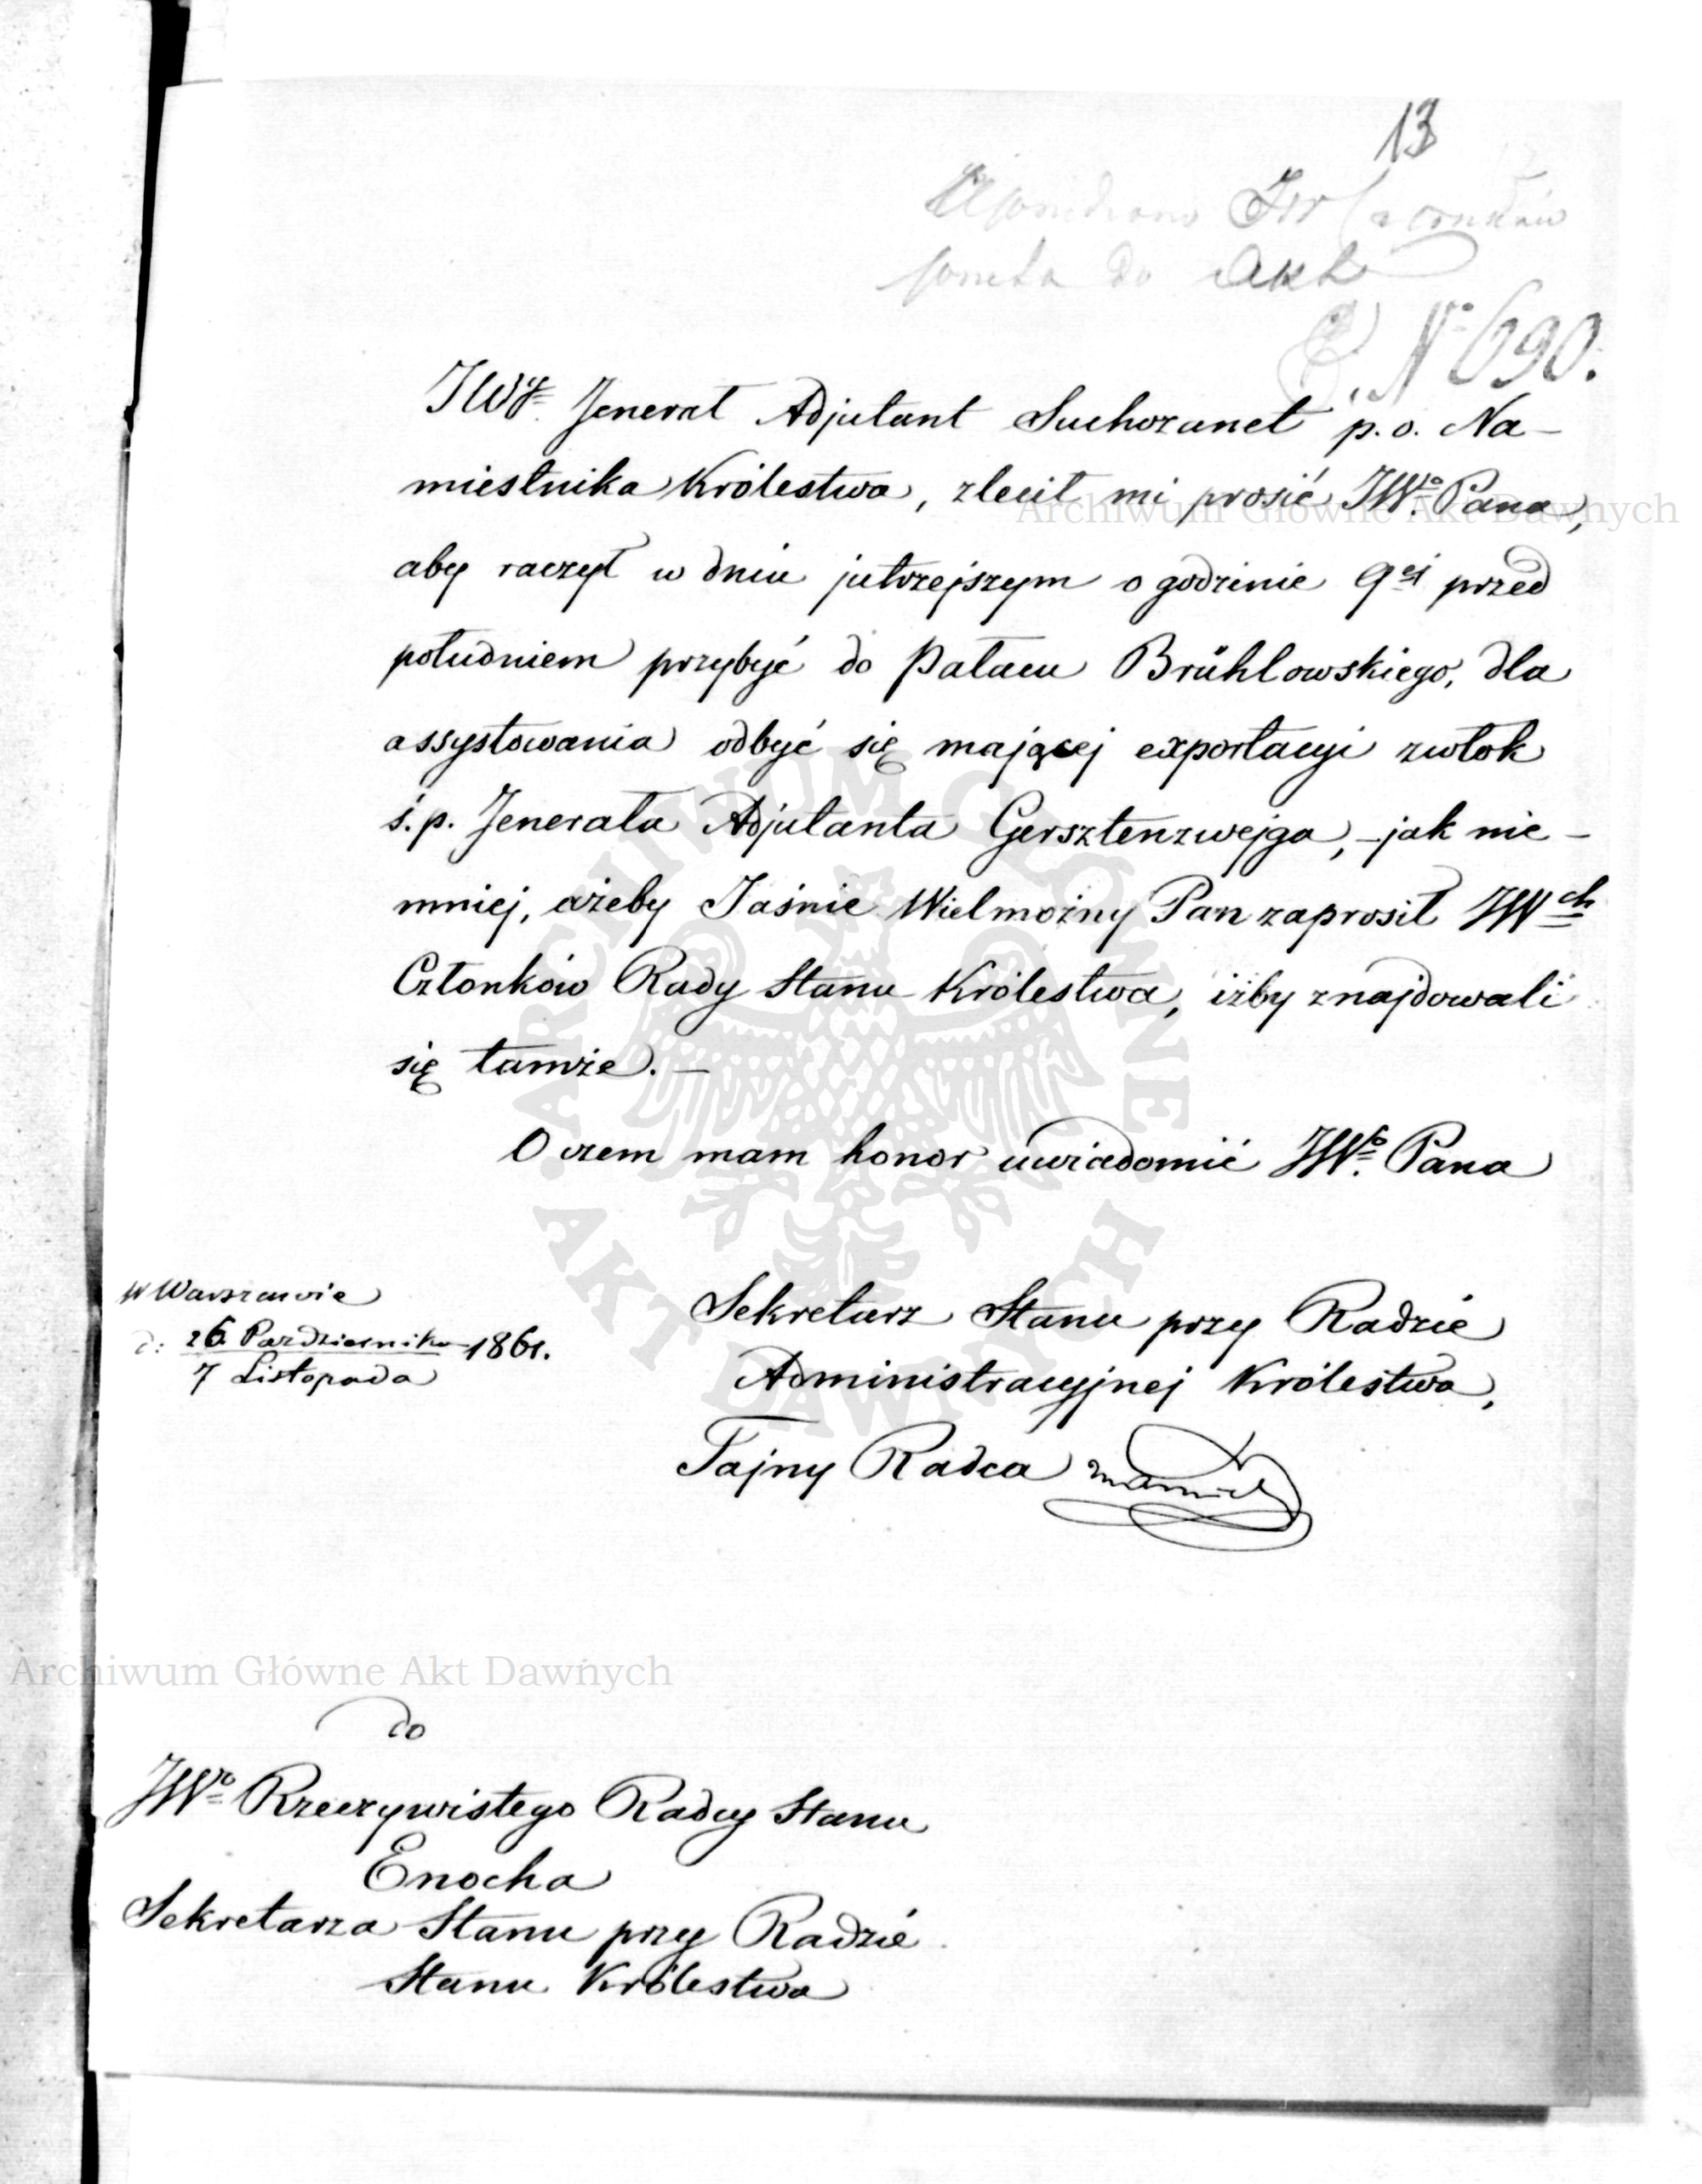 13
do Akt
N° 690.
JWy Jenerał Adjutant Suchozanet p.o. Na-
miestnika Królestwa, zlecił mi prosić JWo. Pana,
aby raczył w dniu jutrzejszym o godzinie 9ej przed
południem przybyć do Pałacu Brühlowskiego, dla
assystowania odbyć się mającej exportacyi zwłok
ś.p. Jenerała Adjutanta Gersztenzwejga, – jak nie-
mniej, ażeby Jaśnie Wielmożny Pan zaprosił JWch
Członków Rady Stanu Królestwa, iżby znajdowali
się tamże. –
O czem mam honor uwiadomić JWo. Pana
w Warszawie
d: 26 Października 1861.
7 Listopada
Sekretarz Stanu przy Radzie
Administracyjnej Królestwa,
Tajny Radca
do
JWo Rzeczywistego Radcy Stanu
Enocha
Sekretarza Stanu przy Radzie
Stanu Królestwa
Archiwum Główne Akt Dawnych
Archiwum Główne Akt Dawnych
ARCHIWUM GŁÓWNE AKT DAWNYCH